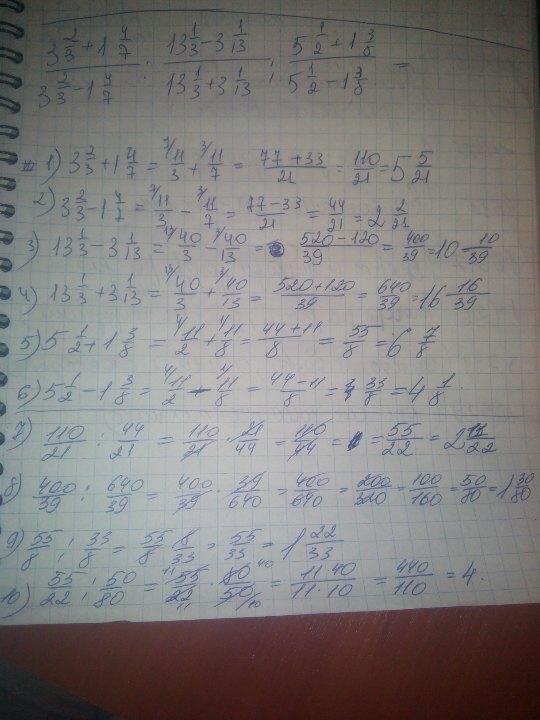 (3 2/3 + 1 4/7)/(3 2/3 - 1 4/7) : (13 1/3 - 3 1/13)/(13 1/3 + 3 1/13) : (5 1/2 + 1 3/8)/(5 1/2 - 1 3/8) =
1) 3 2/3 + 1 4/7 = 11/3 + 11/7 = (77+33)/21 = 110/21 = 5 5/21
2) 3 2/3 - 1 4/7 = 11/3 - 11/7 = (77-33)/21 = 44/21 = 2 2/21
3) 13 1/3 - 3 1/13 = 40/3 - 40/13 = (520-120)/39 = 400/39 = 10 10/39
4) 13 1/3 + 3 1/13 = 40/3 + 40/13 = (520+120)/39 = 640/39 = 16 16/39
5) 5 1/2 + 1 3/8 = 11/2 + 11/8 = (44+11)/8 = 55/8 = 6 7/8
6) 5 1/2 - 1 3/8 = 11/2 - 11/8 = (44-11)/8 = 33/8 = 4 1/8
7) 110/21 : 44/21 = 110/21 · 21/44 = 110/44 = 55/22 = 2 11/22
8) 400/39 : 640/39 = 400/39 · 39/640 = 400/640 = 200/320 = 100/160 = 50/80 = 1 30/80
9) 55/8 : 33/8 = 55/8 · 8/33 = 55/33 = 1 22/33
10) 55/22 : 50/80 = 55/22 · 80/50 = (11·40)/(11·10) = 440/110 = 4.